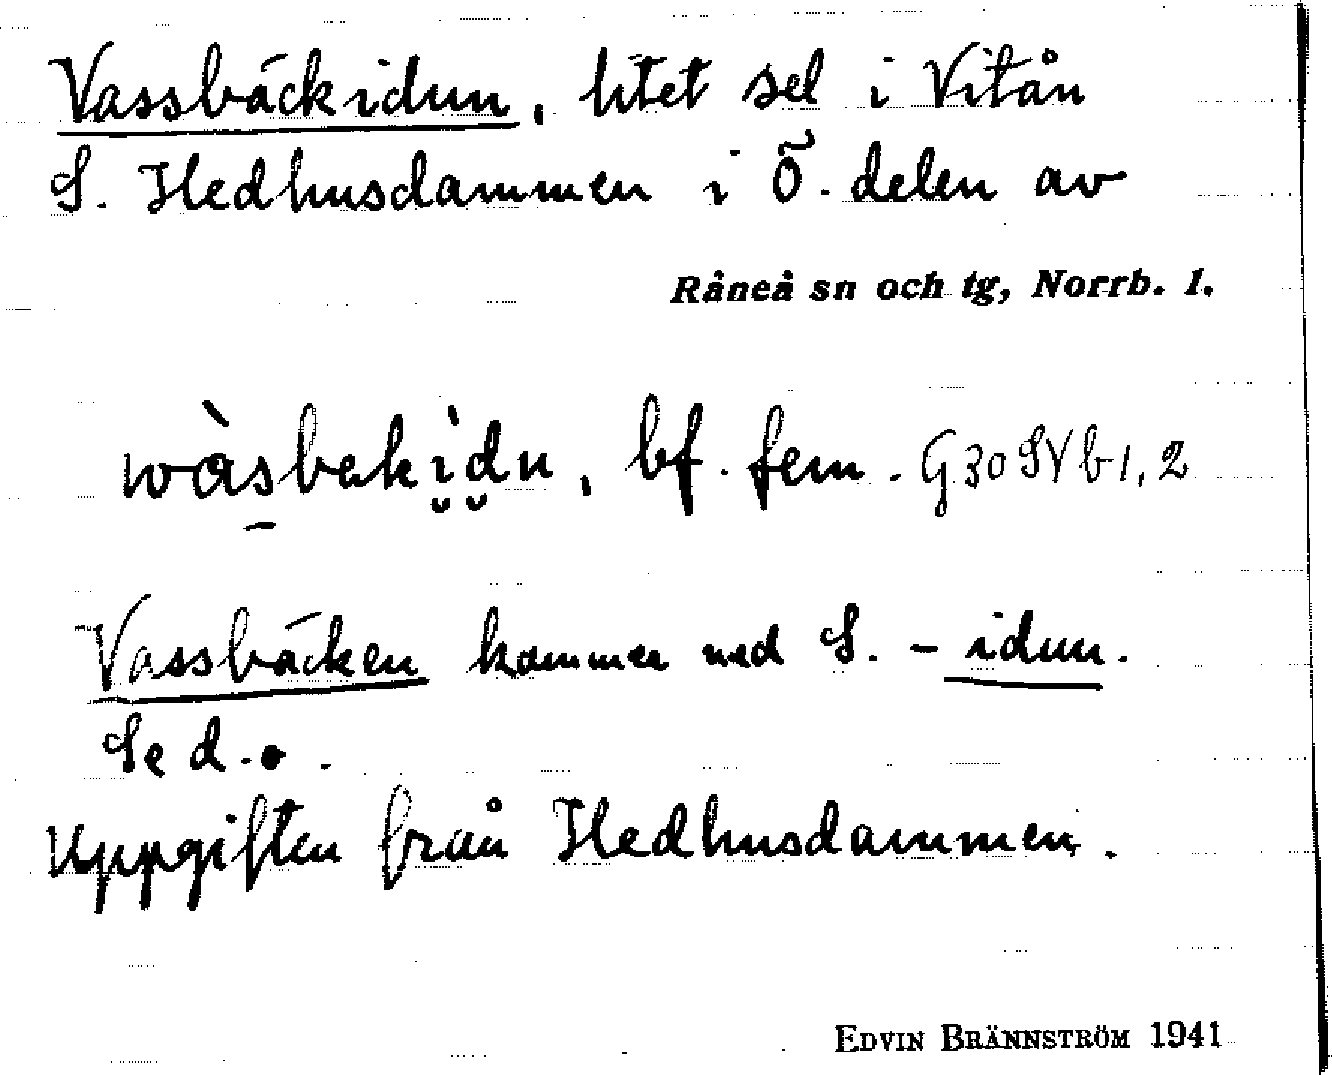 Vassbäckidun, litet sel i Vitån
S. Hedhusdammen i Ö. delen av
Råneå sn och tg, Norrb. l.
wàsbekìdn, bf. fem. G 30 SV b 1, 2
Vassbäcken kommer ned S. - idun.
Se d.o.
Uppgiften från Hedhusdammen.
EDVIN BRÄNNSTRÖM 1941